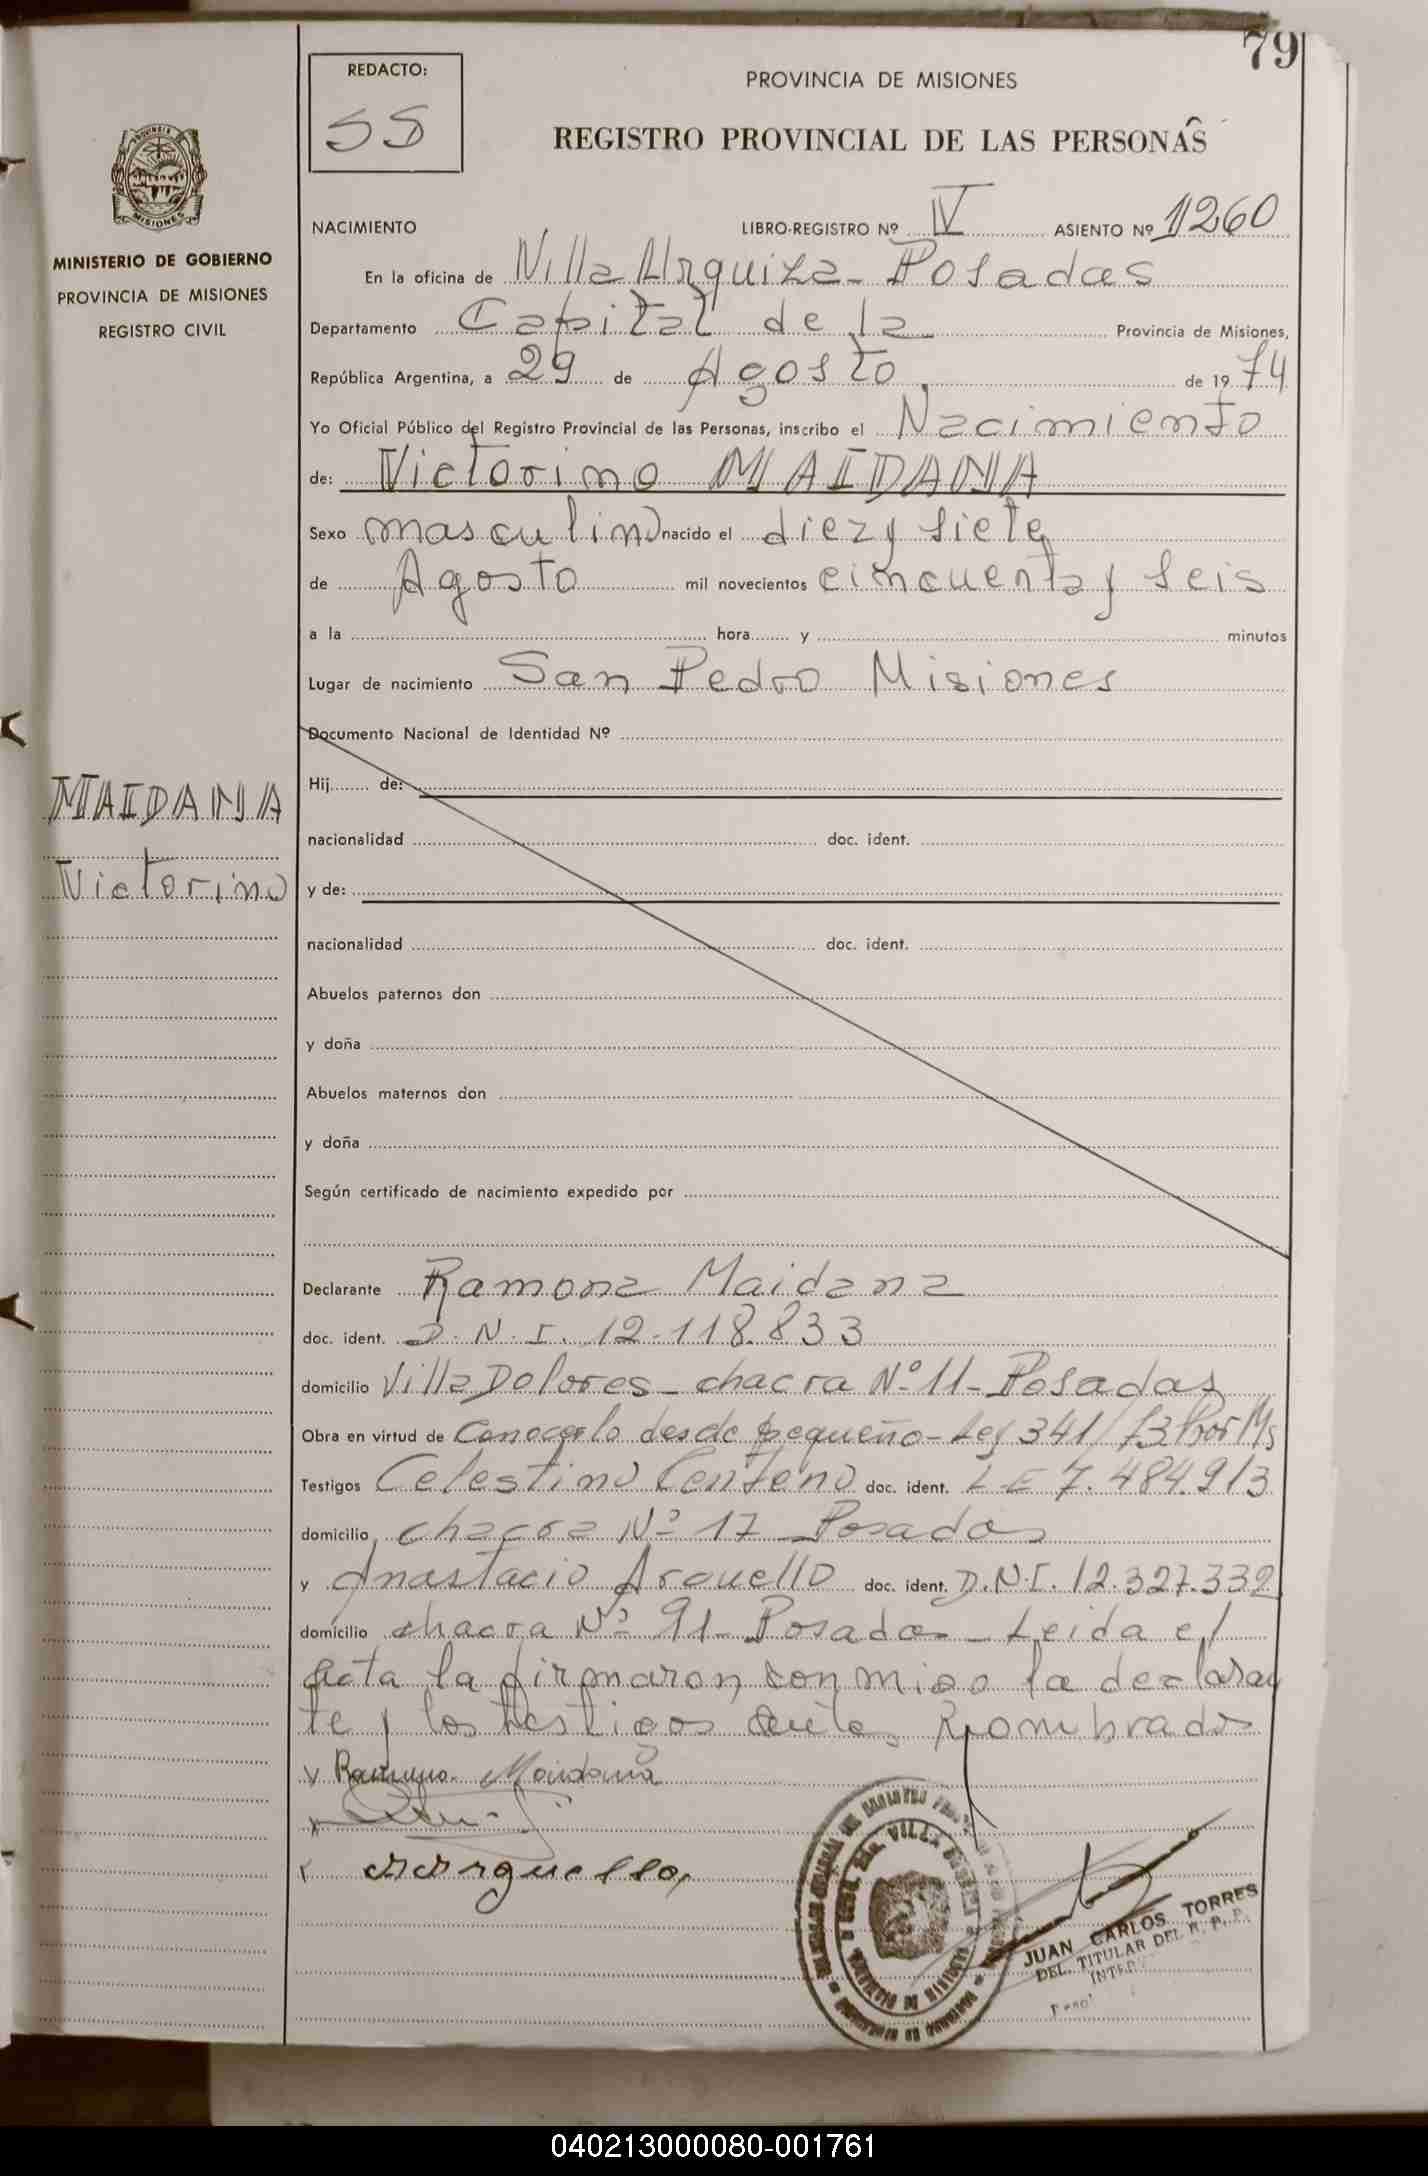 79
REDACTO:
SS
PROVINCIA DE MISIONES
REGISTRO PROVINCIAL DE LAS PERSONAS
MINISTERIO DE GOBIERNO
PROVINCIA DE MISIONES
REGISTRO CIVIL
NACIMIENTO LIBRO-REGISTRO Nº IV ASIENTO Nº 1260
En la oficina de Villa Urquiza - Posadas
Departamento Capital de la Provincia de Misiones,
República Argentina, a 29 de Agosto, de 1974
Yo Oficial Público del Registro Provincial de las Personas, inscribo el Nacimiento
de: Victorino MAIDANA
Sexo masculino nacido el diez y siete
de Agosto mil novecientos cincuenta y seis
a la hora y minutos
Lugar de nacimiento San Pedro Misiones
Documento Nacional de Identidad Nº
Hij de:
MAIDANA
Victorino
nacionalidad doc. ident.
y de:
nacionalidad doc. ident.
Abuelos paternos don
y doña
Abuelos maternos don
y doña
Según certificado de nacimiento expedido por
Declarante Ramona Maidana
doc. ident. D.N.I. 12.118.833
domicilio Villa Dolores - chacra Nº 11 - Posadas
Obra en virtud de Conocerlo desde pequeño - Ley 341/73
Testigos Celestino Centeno doc. ident. L E 7.484.913
domicilio chacra Nº 17 Posadas
y Anastacio Arguello doc. ident. D.N.I. 12.327.332
domicilio chacra Nº 91 - Posadas - Leida el
acta la firmaron conmigo la declaran
te y los testigos ante nombrados
Ramona Maidana
Arguello
JUAN CARLOS TORRES
DEL. TITULAR DEL R. P. P.
040213000080-001761